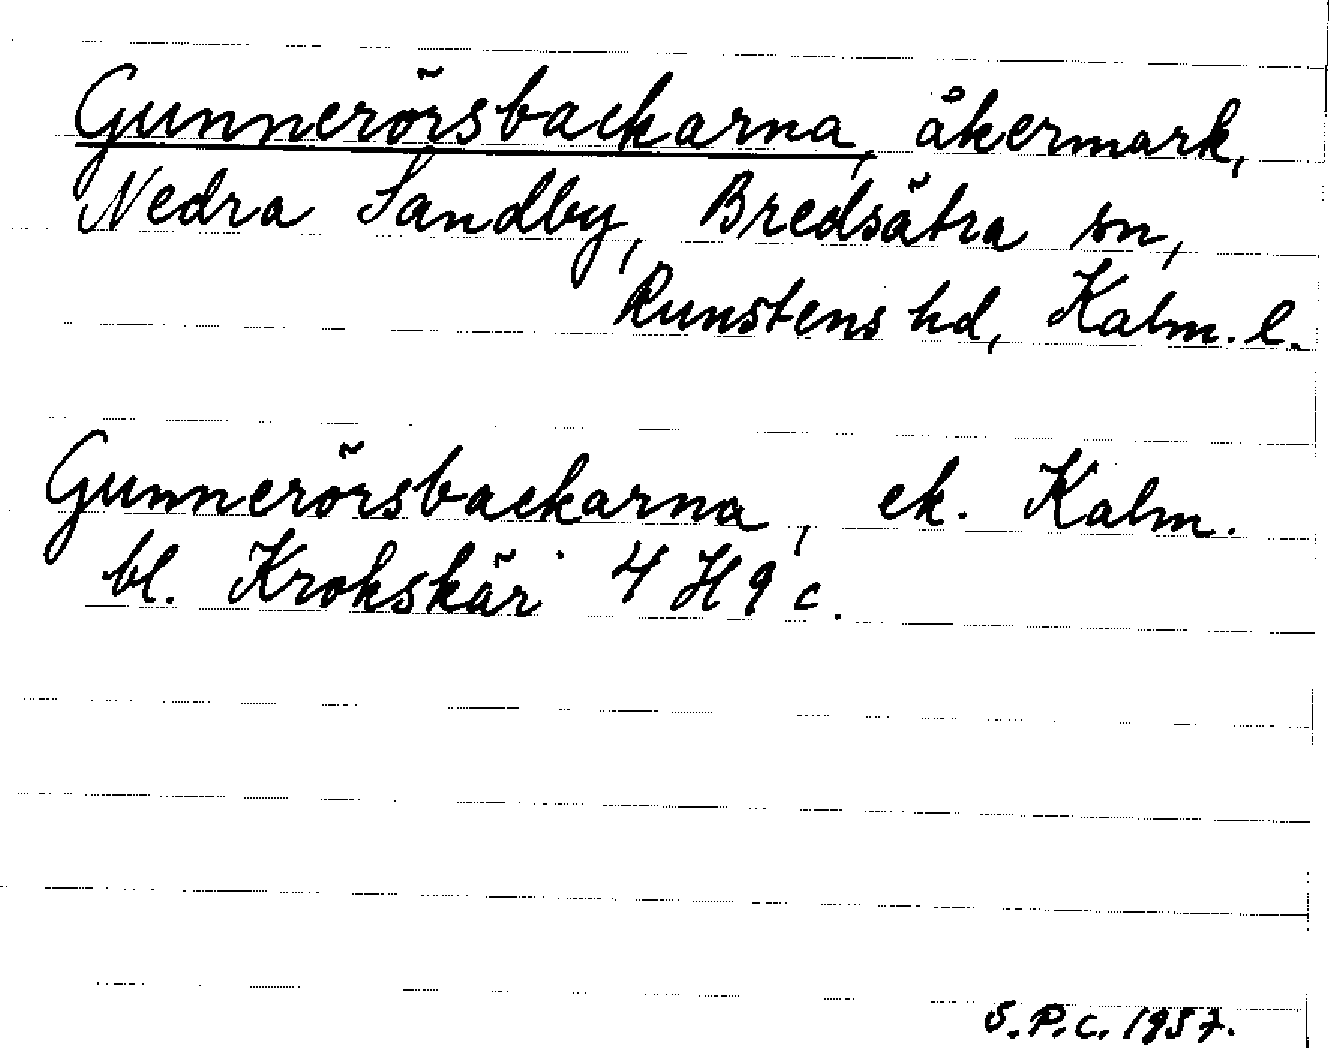 Gunnerörsbackarna, åkermark,
Nedra Sandby, Bredsätra sn,
Runstens hd, Kalm. l.
Gunnerörsbackarna, ek. Kalm.
bl. Krokskär 4 H 9 c.
S.P.C. 1957.